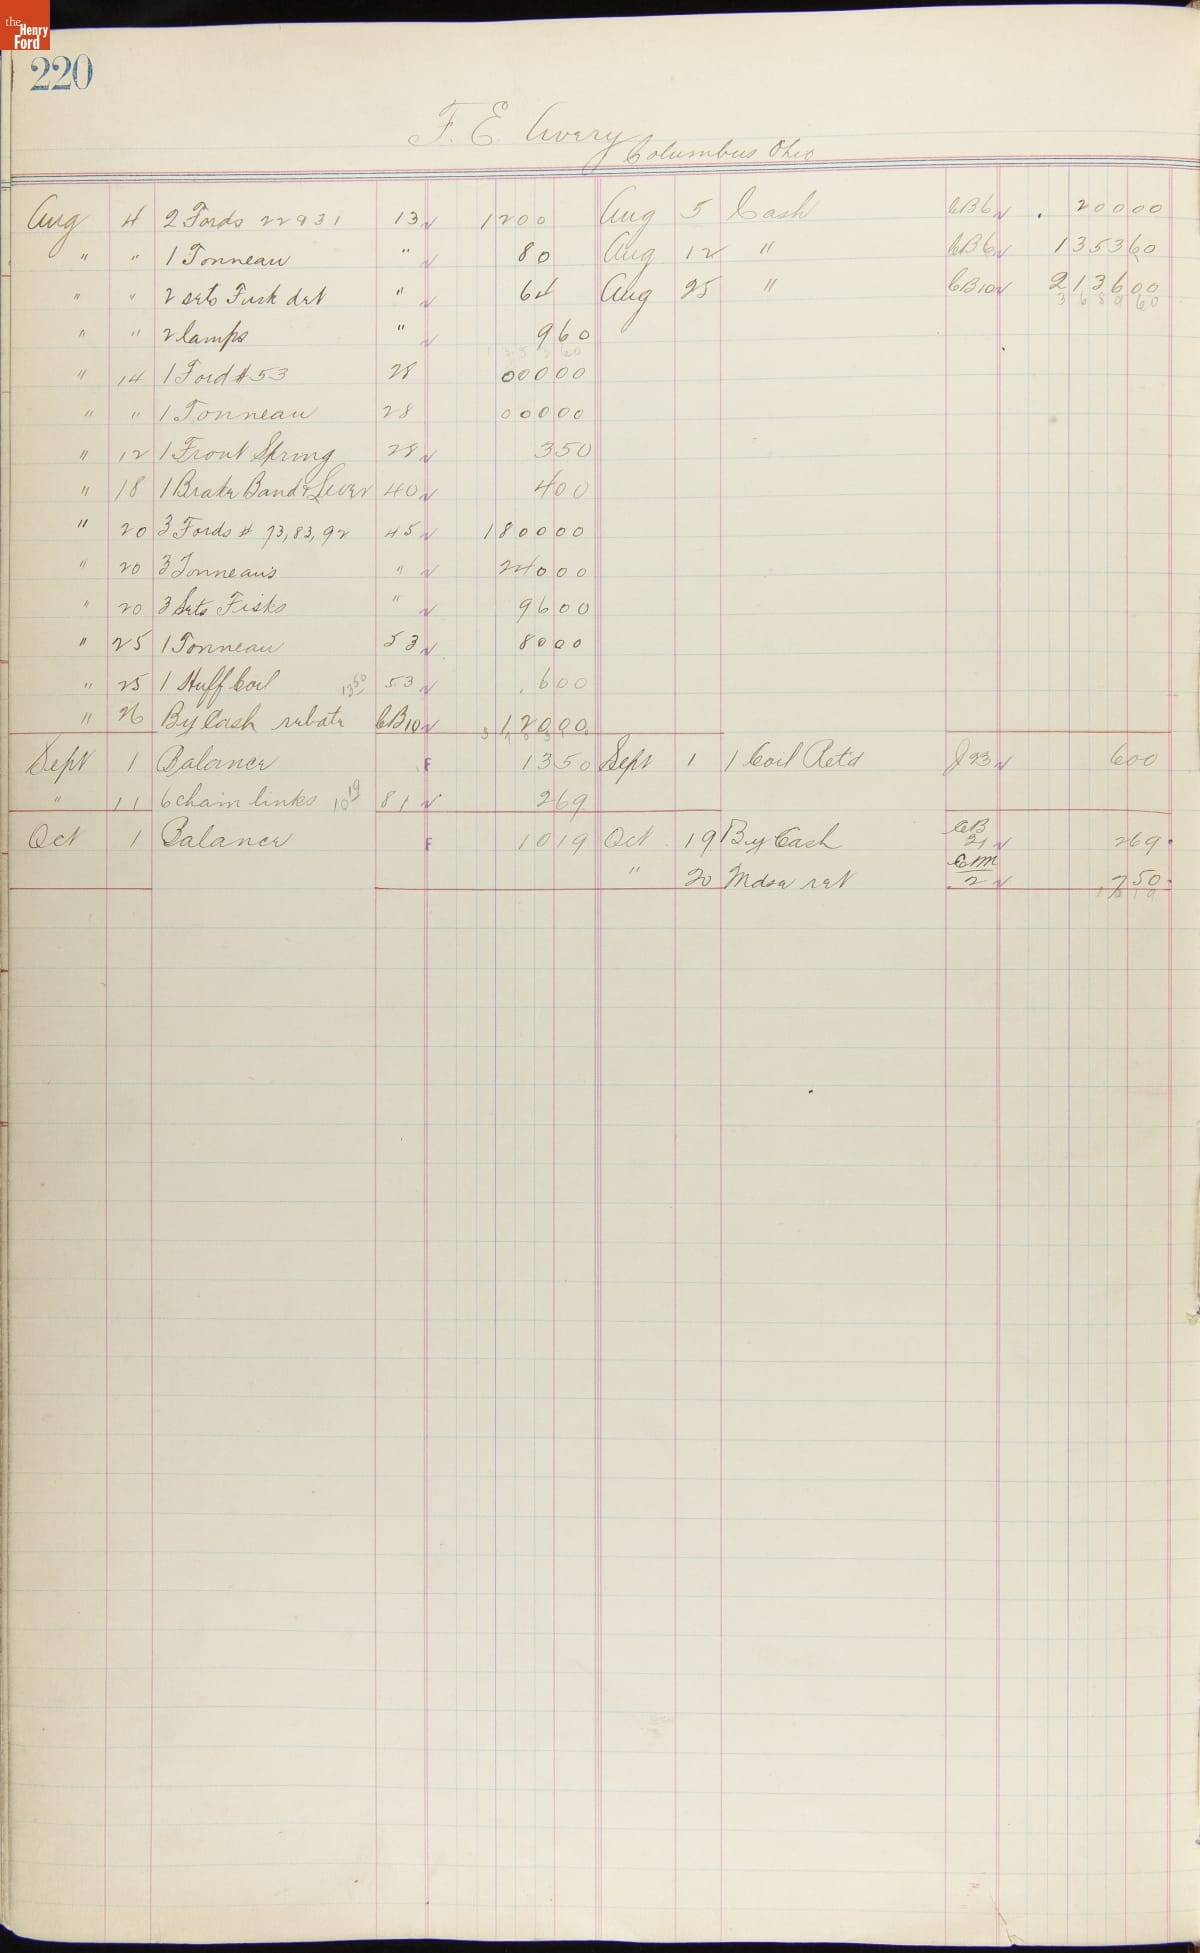 the Henry Ford
220
F. E. Avery
Columbus Ohio
Aug 4 2 Fords 22931 13 1200 Aug 5 Cash CB6 20000
" " 1 Tonneau " 80 Aug 12 " CB6 135360
" " 2 sets Fisk det " 64 Aug 25 " CB10 213600
3 6 8 9 60
" " 2 lamps " 960
" 14 1 Ford # 53 28 00000
" " 1 Tonneau 28 00000
" 12 1 Front Spring 28 350
" 18 1 Brake Band & Lever 40 400
" 20 3 Fords # 73, 83, 92 45 180000
" 20 3 Tonneaus " 24000
" 20 3 Sets Fisks " 9600
" 25 1 Tonneau 53 8000
" 25 1 Huff Coil 13 50 53 600
" 26 By Cash rebate CB10 12000
Sept 1 Balance F 1350 Sept 1 1 Coil Retd J23 600
" 11 6 chain links 10 19 81 269
Oct 1 Balance F 1019 Oct 19 By Cash CB 21 269
" 20 Mdse ret CM 2 750